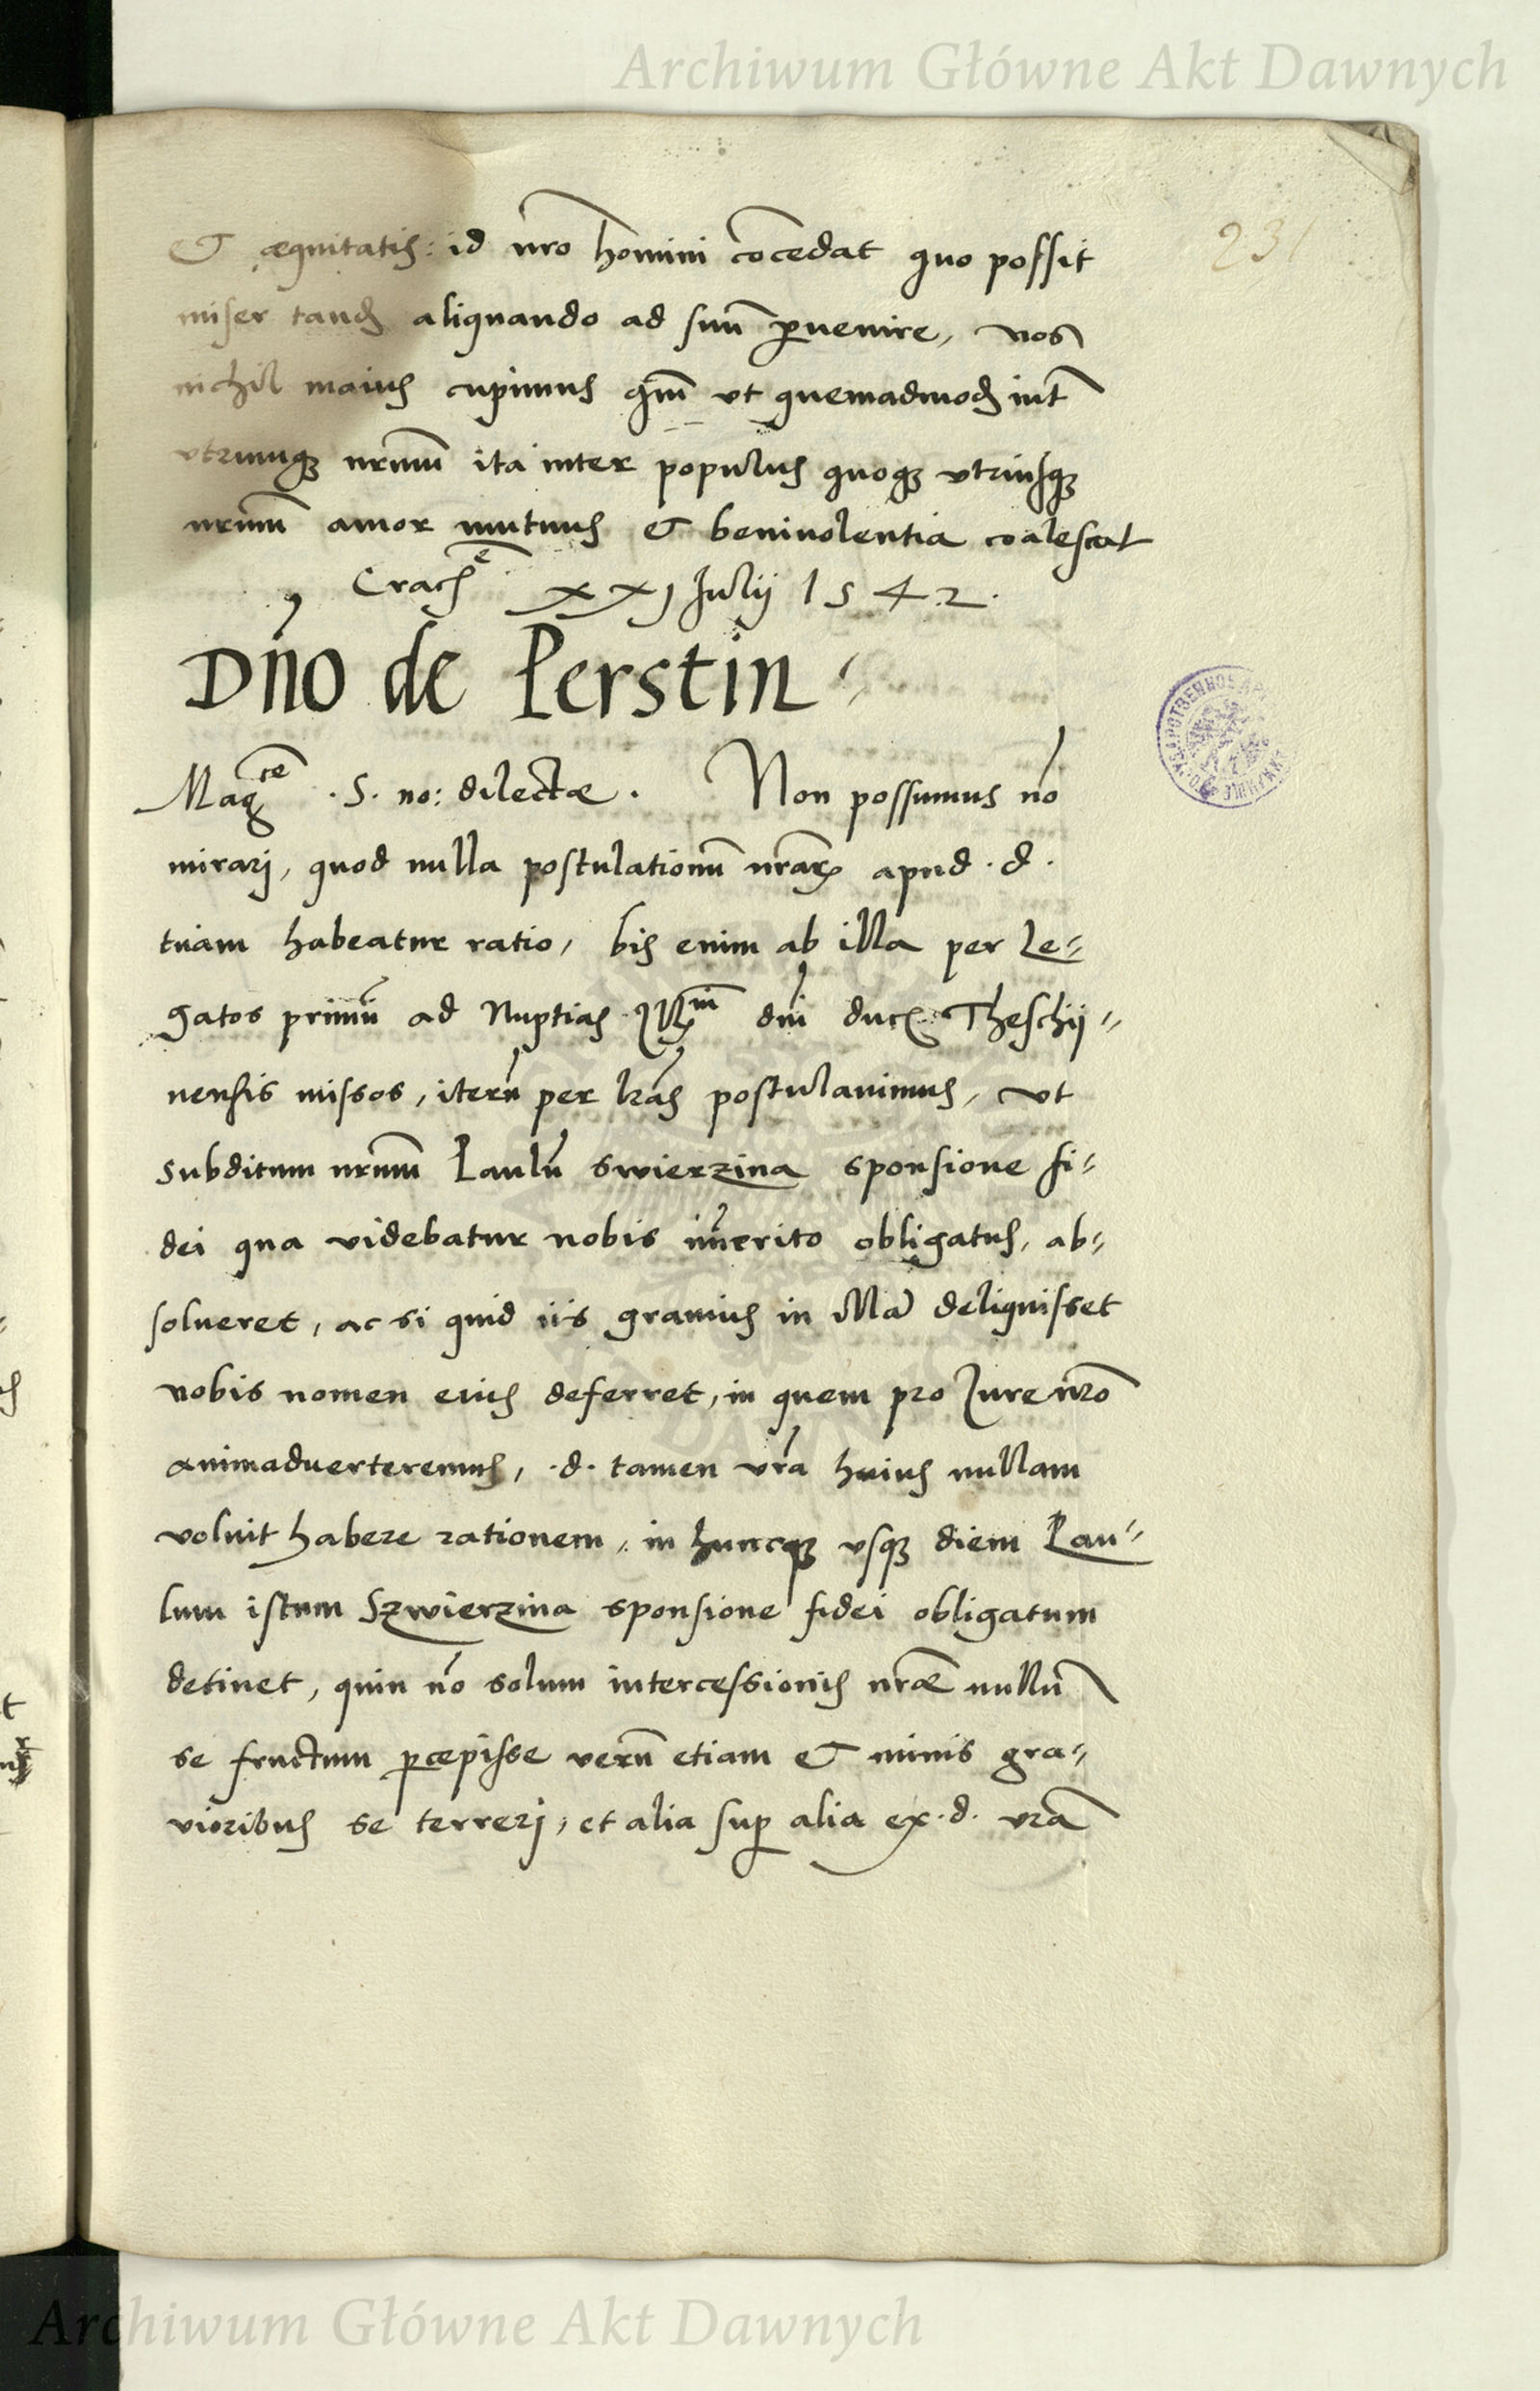 Archiwum Główne Akt Dawnych
231
& æquitatis: id nrõ homini cõcedat quo possit
miser tandẽ aliquando ad suũ pervenire, nos
nichil maius cupimus qm̃ ut quemadmodũ int̃
utrumqꝫ nrmũ ita inter populus quoqꝫ utriusqꝫ
nrmũ amor mutuus & benivolentia coalescat
Cracẽ XXJ Julij 1542.
Dn̄o de Perstin
Magᶜᵉ .S. no: dilectæ. Non possumus nõ
mirarj, quod nulla postulationũ nrarꝝ apud .d.
tuam habeatur ratio, bis enim ab illa per Le=
gatos primũ ad Nuptias Illᵐⁱ dnĩ ducꝭ Theschij=
nensis missos, iterũ per lrãs postulavimus, ut
subditum nrmũ Paulũ swierzina sponsione fi=
dei qua videbatur nobis im̃erito obligatus, ab=
solveret, ac si quid iis gravius in Ma deliquisset
nobis nomen eius deferret, in quem pro Jure nrõ
animadverteremus, .d. tamen vrã huius nullam
voluit habere rationem, in huncqꝫ usqꝫ diem Pau=
lum istum Szwierzina sponsione fidei obligatum
detinet, quin nõ solum intercessionis nræ nullũ
se fructum ꝑcæpisse verũ etiam & minis gra=
vioribus se terrerj, et alia suꝑ alia ex .d. vrã
Archiwum Główne Akt Dawnych